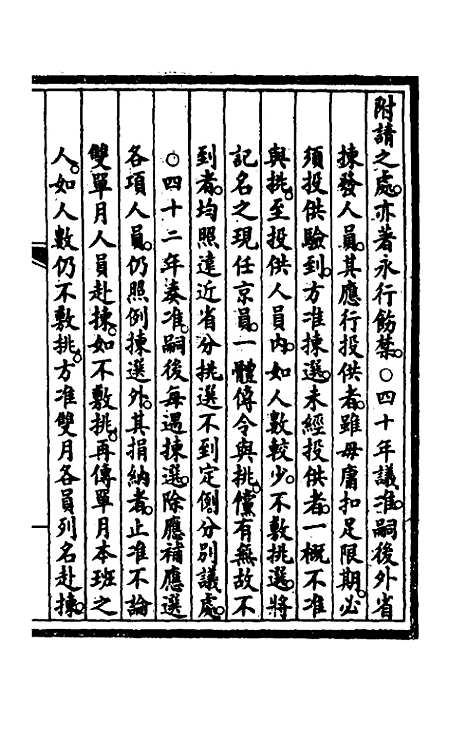 附請之處。亦著永行飭禁。○四十年議准。嗣後外省
揀發人員。其應行投供者。雖毋庸扣足限期。必
須投供驗到。方准揀選。未經投供者。一概不准
與挑。至投供人員內。如人數較少。不敷挑選。將
記名之現任京員。一體傳令與挑。儻有無故不
到者。均照遠近省分挑選不到定例分別議處。
○四十二年奏准。嗣後每遇揀選。除應補應選
各項人員。仍照例揀選外。其捐納者。止准不論
雙單月人員赴揀。如不敷挑。再傳單月本班之
人。如人數仍不敷挑。方准雙月各員列名赴揀。